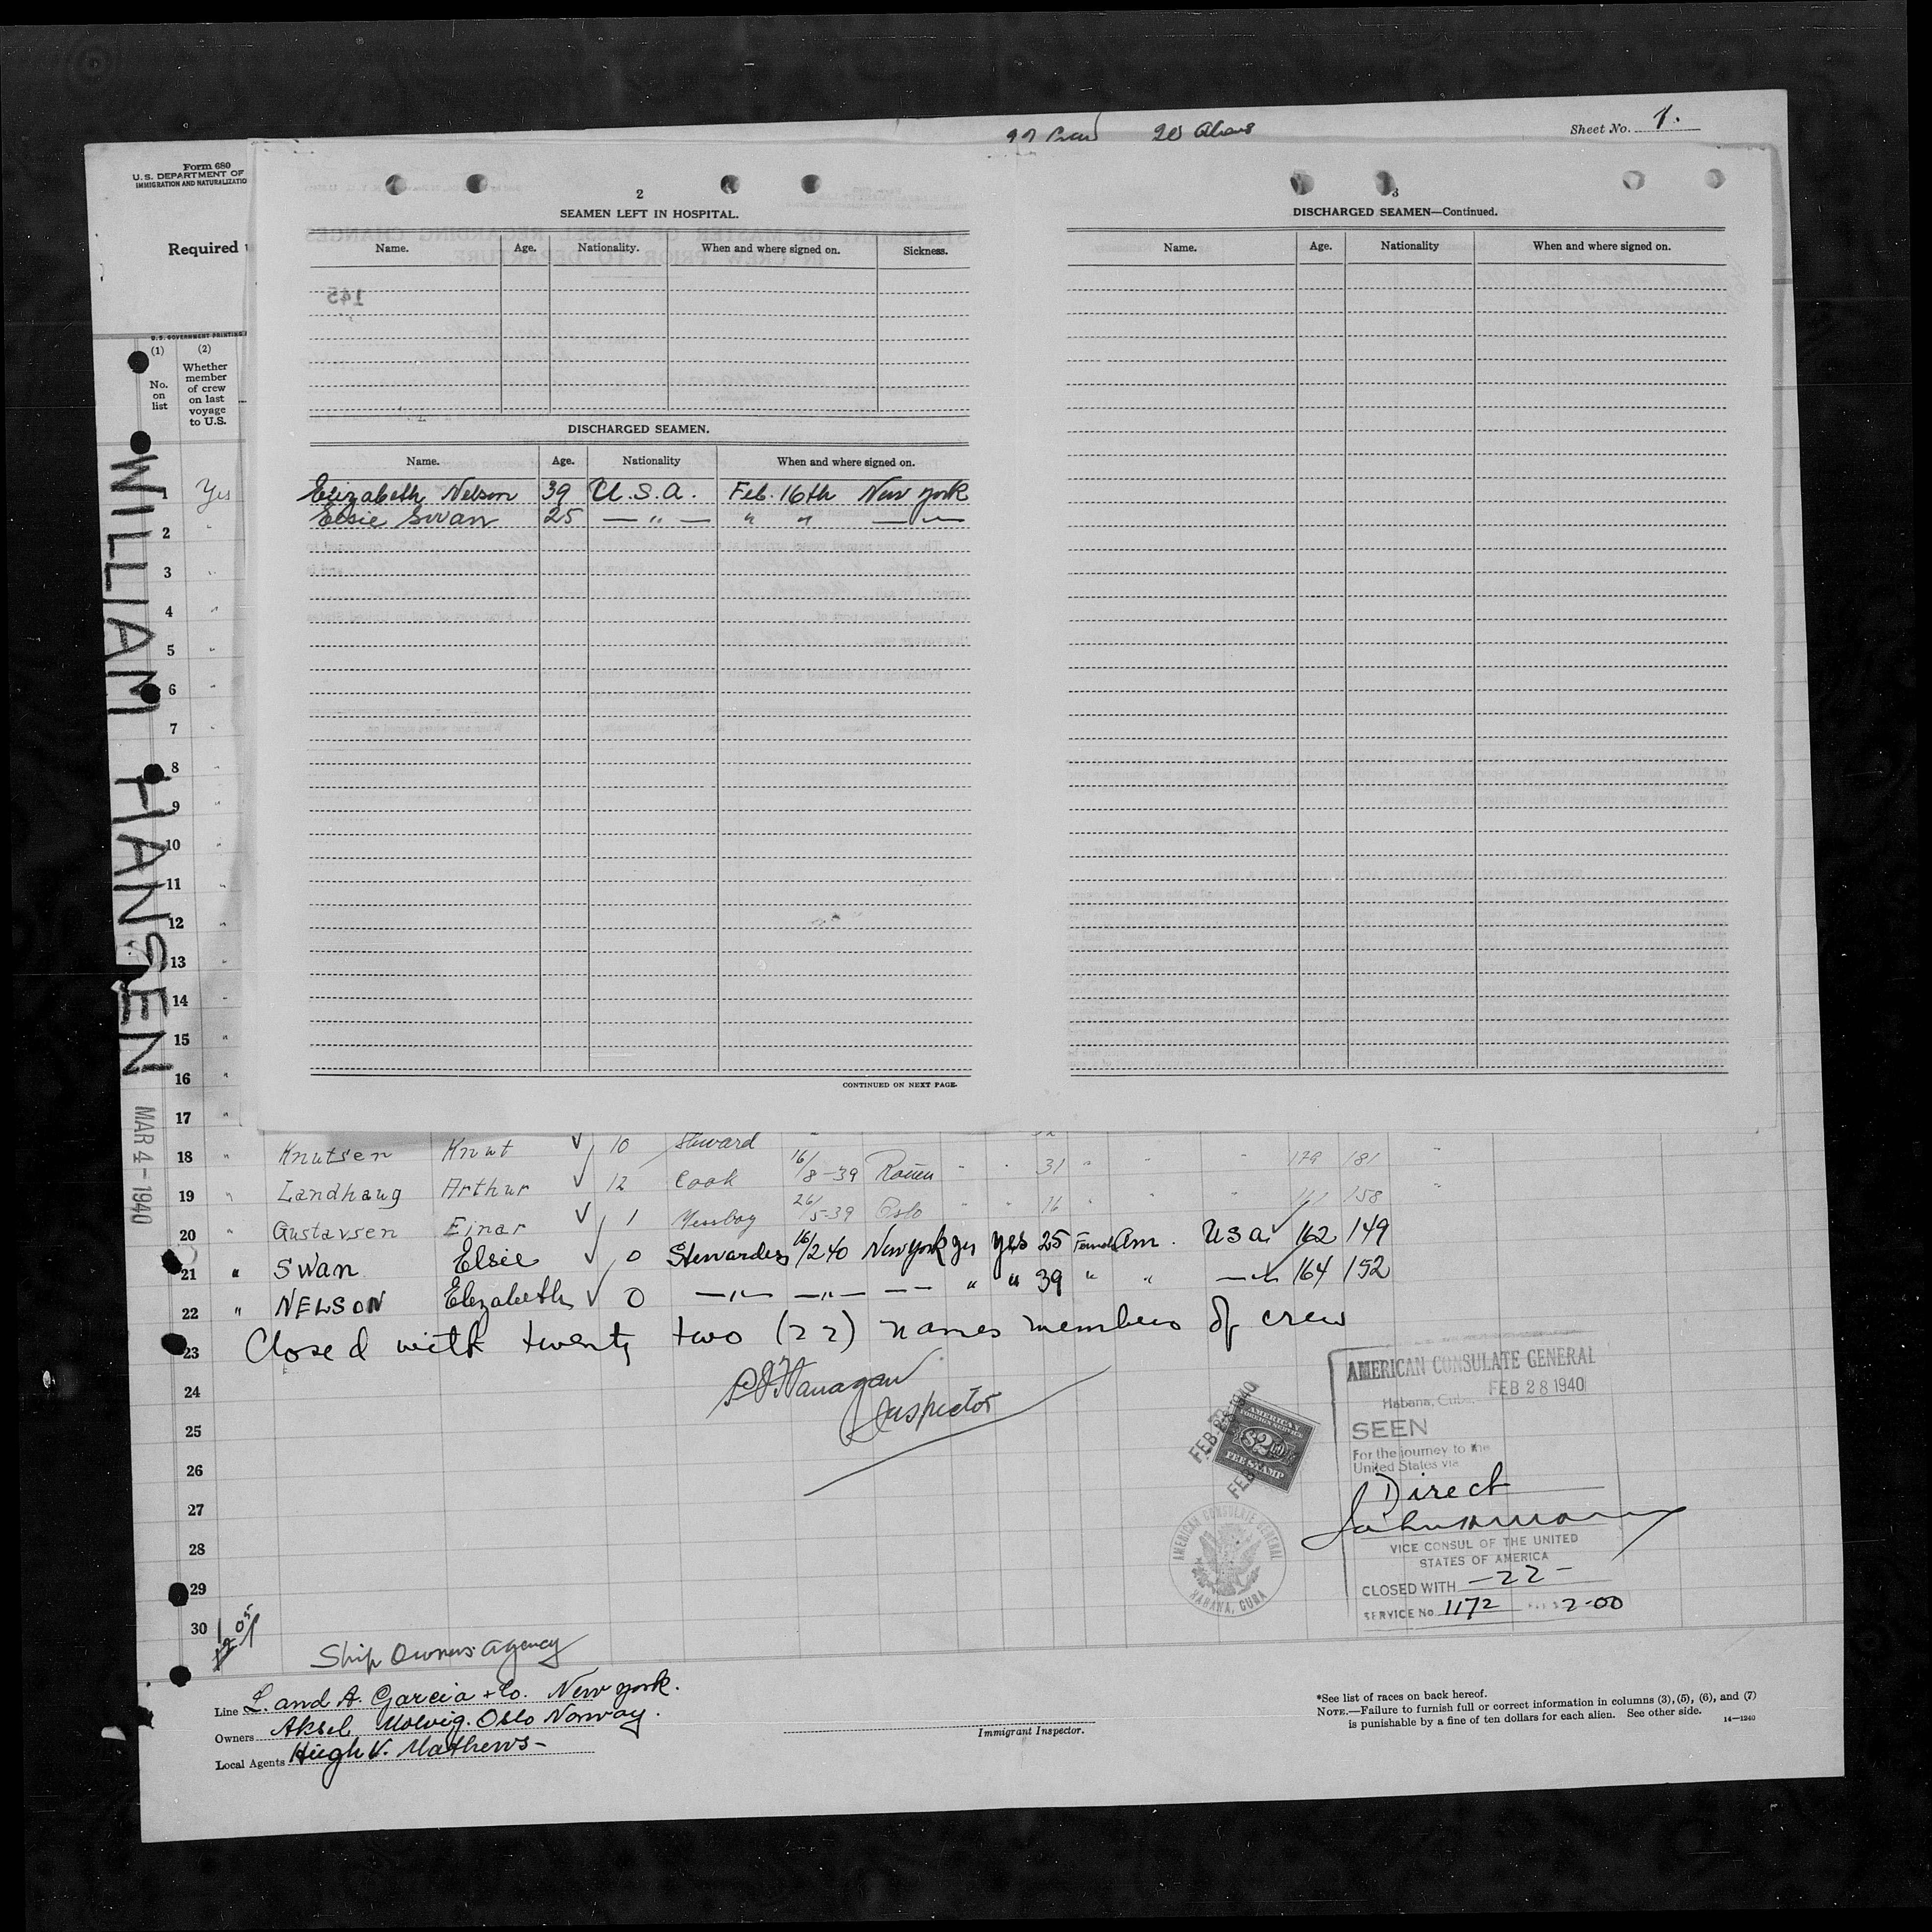 Sheet No. 1.
Form 680
U.S. DEPARTMENT OF
IMMIGRATION AND NATURALIZATIO
Required
U.S. GOVERNMENT PRINTING
(1) (2)
No. on list
Whether member of crew on last voyage to U.S.
2
SEAMEN LEFT IN HOSPITAL.
Name. Age. Nationality. When and where signed on. Sickness.
145
DISCHARGED SEAMEN.
Name. Age. Nationality When and where signed on.
Elizabeth Nelson 39 U.S.A. Feb. 16th New York
Elsie Swan 25 — " — " " — " —
CONTINUED ON NEXT PAGE.
3
DISCHARGED SEAMEN—Continued.
Name. Age. Nationality When and where signed on.
WILLIAM HANSEN
MAR 4-1940
1 Yes
2 "
3 "
4 "
5 "
6 "
7 "
8 "
9 "
10 "
11 "
12 "
13 "
14 "
15 "
16 "
17 "
18 " Knutsen Knut 10 Steward
19 " Landhaug Arthur 12 Cook 16/8-39 Rouen " " 31 " " " 179 181 "
20 " Gustavsen Einar 1 Messboy 26/5-39 Oslo " " 16 " " " 161 158 "
21 " Swan Elsie 0 Stewardess 16/2 40 New York yes yes 25 Female Am. U S a. 162 149
22 " NELSON Elizabeth 0 — " — — " — — — " " 39 " " — " — 164 152
23 Closed with twenty two (22) names members of crew
24
Inspector
25
26
27
28
29
30
AMERICAN CONSULATE GENERAL
Habana, Cuba, FEB 28 1940
SEEN
For the journey to the
United States via
Direct
VICE CONSUL OF THE UNITED
STATES OF AMERICA
CLOSED WITH —22—
SERVICE No 1172 2.00
FEB 28 1940
AMERICAN FOREIGN SERVICE
$2.00
FEE STAMP
AMERICAN CONSULATE GENERAL
HABANA, CUBA
Ship Owners Agency
Line L. and A. Garcia + Co. New York.
Owners Aksel Molvig. Oslo Norway.
Local Agents Hugh V. Mathews-
Immigrant Inspector.
*See list of races on back hereof.
NOTE.—Failure to furnish full or correct information in columns (3), (5), (6), and (7)
is punishable by a fine of ten dollars for each alien. See other side.
14—1240